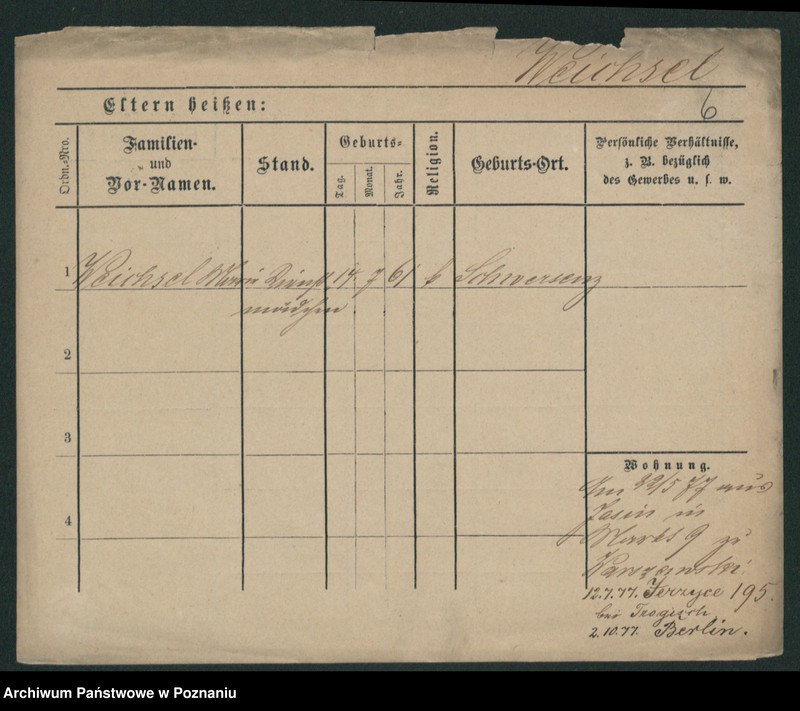 Weichsel
6
Eltern heißen:
Ordn.-Nro.
Familien- und Vor-Namen.
Stand.
Geburts-
Tag.
Monat.
Jahr.
Religion.
Geburts-Ort.
Persönliche Verhältnisse,
z. B. bezüglich
des Gewerbes u. s. w.
1 Weichsel Marie Dienst 14. 7 61 k Schwersenz
mädchen
2
3
4
Wohnung.
Am 22/5 77 aus
in
Markt 9 zu
12.7.77. Jerzyce 195.
bei
2.10.77. Berlin.
Archiwum Państwowe w Poznaniu